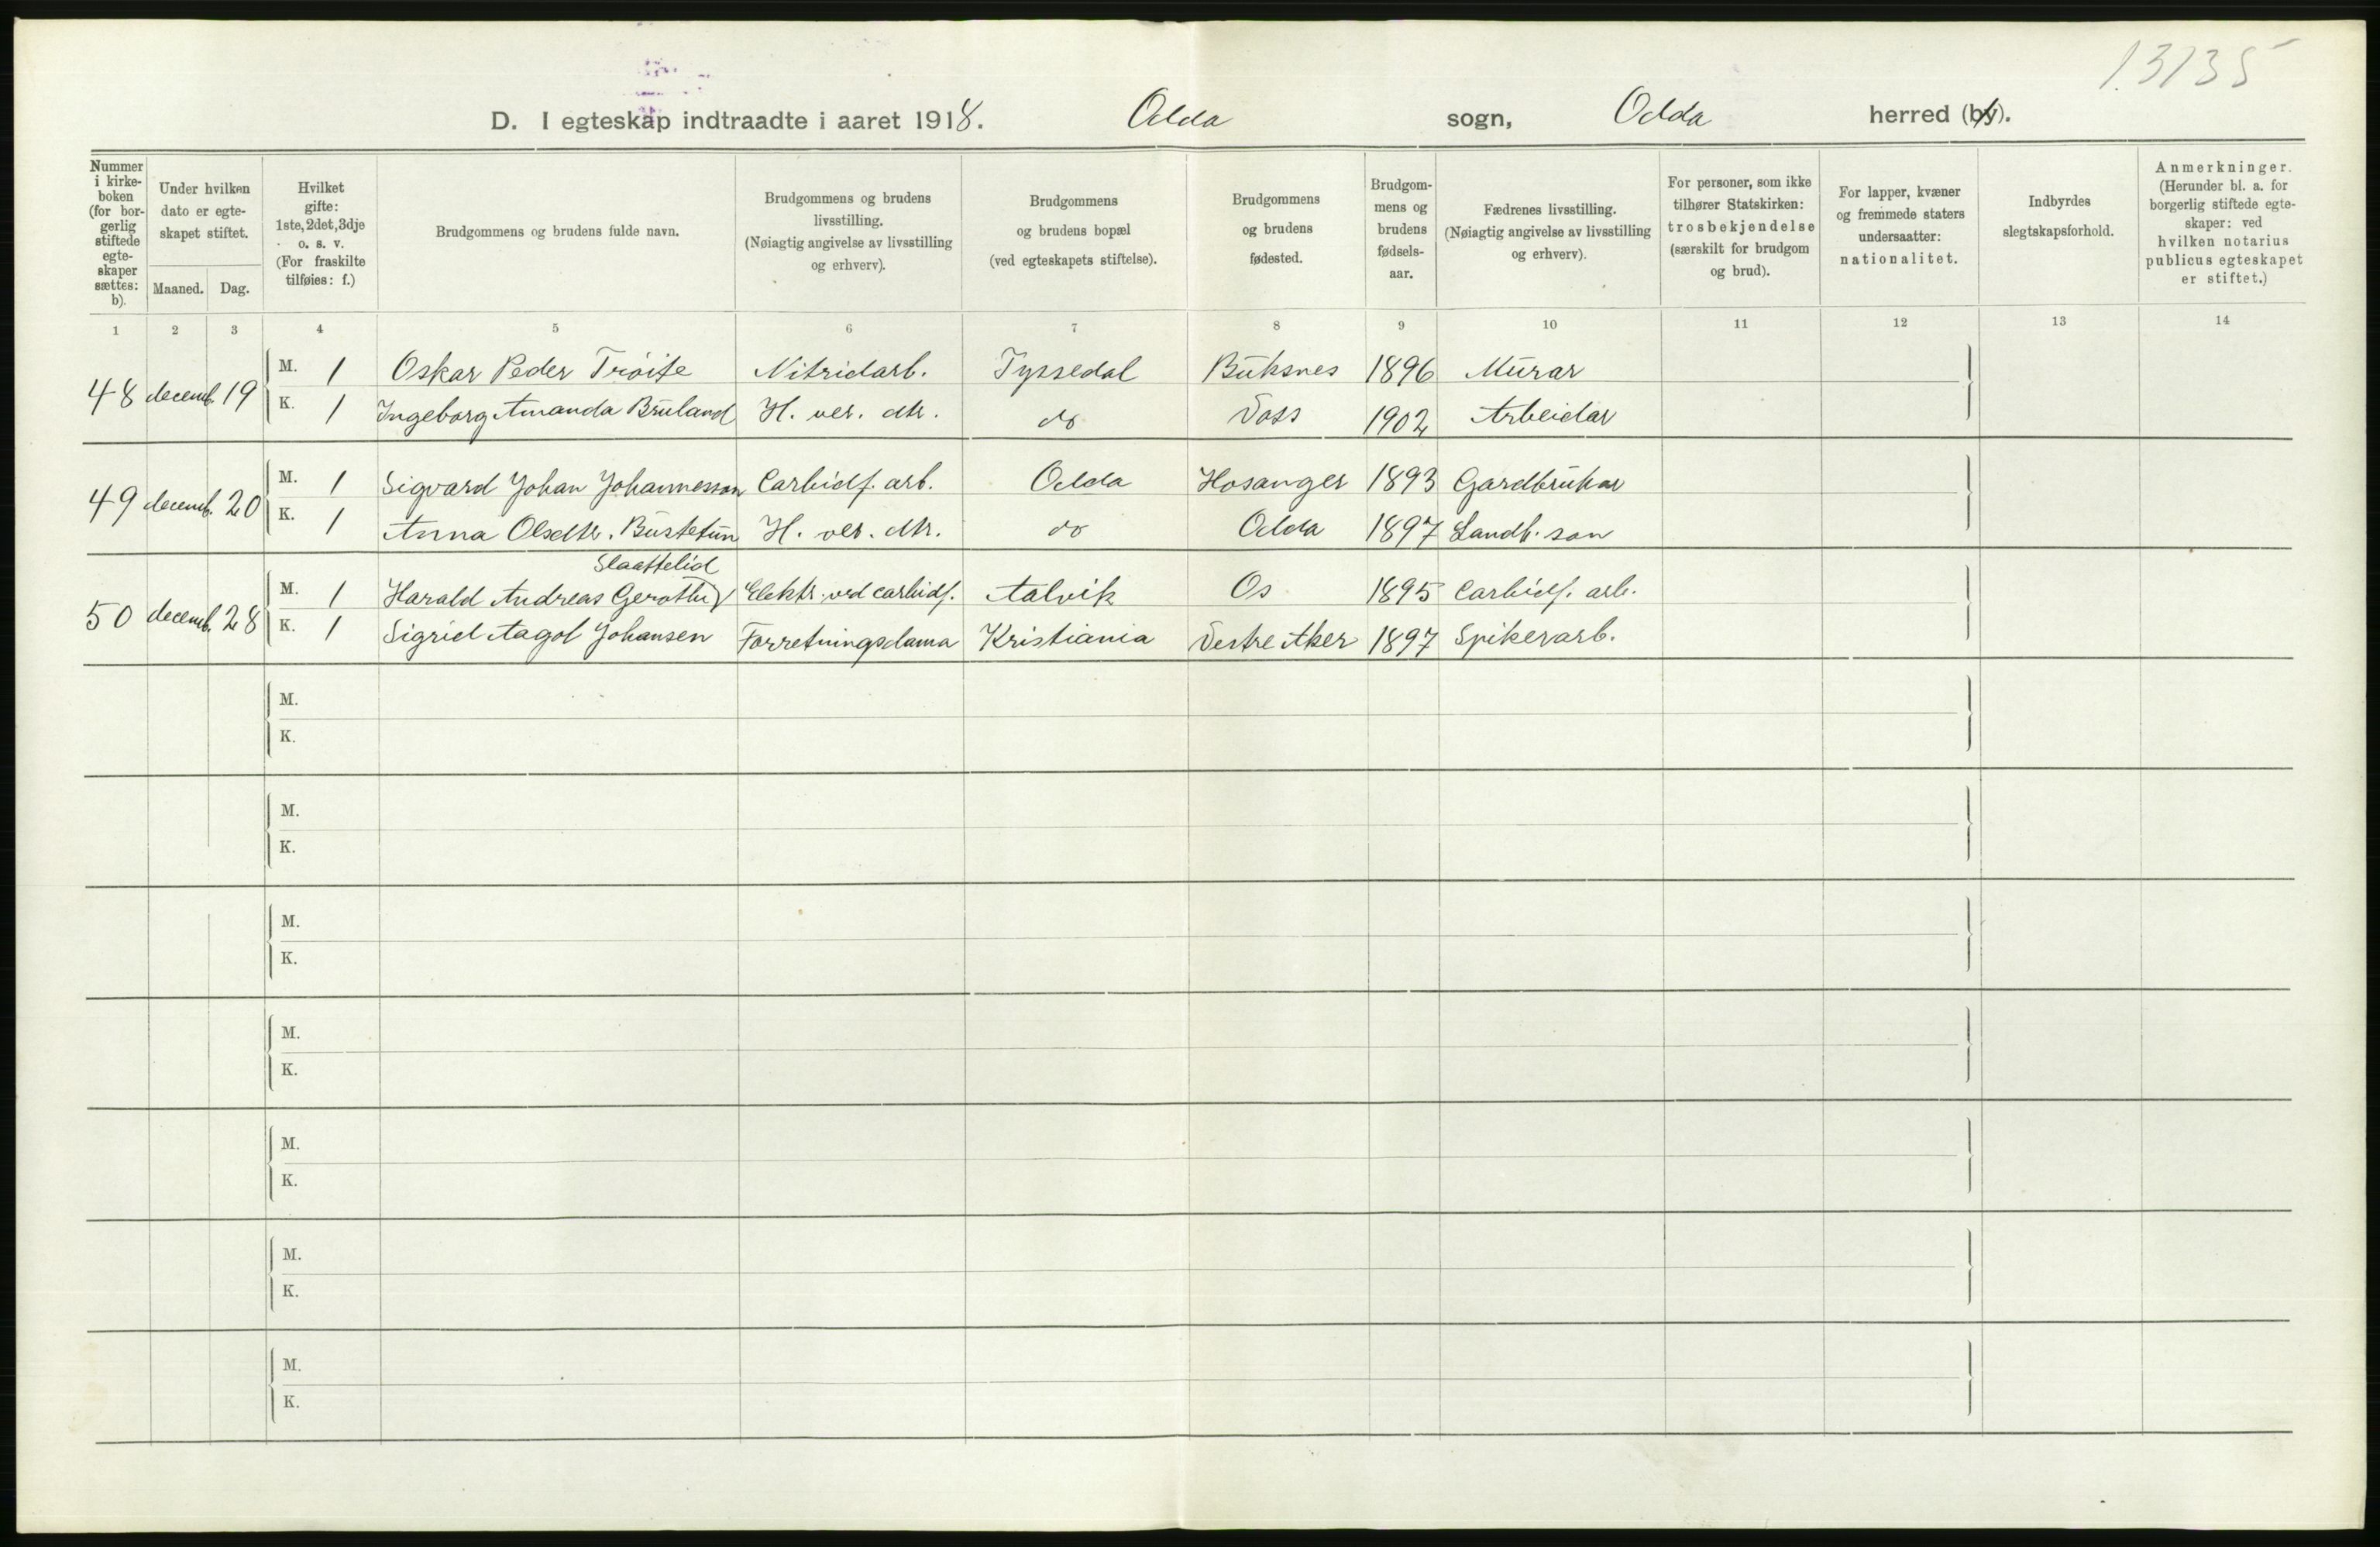 13135
D. I egteskap indtraadte i aaret 1918. Odda sogn, Odda herred (by).
Nummer i kirkeboken (for borgerlig stiftede egteskaper sættes: b).
Under hvilken dato er egteskapet stiftet.
Maaned. Dag.
Hvilket gifte: 1ste, 2det, 3dje o. s. v. (For fraskilte tilføies: f.)
Brudgommens og brudens fulde navn.
Brudgommens og brudens livsstilling. (Nøiagtig angivelse av livsstilling og erhverv).
Brudgommens og brudens bopæl (ved egteskapets stiftelse).
Brudgommens og brudens fødested.
Brudgommens og brudens fødselsaar.
Fædrenes livsstilling. (Nøiagtig angivelse av livsstilling og erhverv).
For personer, som ikke tilhører Statskirken: trosbekjendelse (særskilt for brudgom og brud).
For lapper, kvæner og fremmede staters undersaatter: nationalitet.
Indbyrdes slegtskapsforhold.
Anmerkninger. (Herunder bl. a. for borgerlig stiftede egteskaper: ved hvilken notarius publicus egteskapet er stiftet.)
1 2 3 4 5 6 7 8 9 10 11 12 13 14
48 decemb. 19 M. 1 Oskar Peder Tröite Nitridarb. Tyssedal Buksnes 1896 Murar
K. 1 Ingeborg Amanda Bruland H. ver. dtr. do Voss 1902 Arbeidar
49 decemb. 20 M. 1 Sigvard Johan Johannesson Carbidf. arb. Odda Hosanger 1893 Gardbrukar
K. 1 Anna Olsdtr. Bustetun H. ver. dtr. do Odda 1897 Landh. son
Slaattelid
50 decemb. 28 M. 1 Harald Andreas Elektr. ved carbidf. Aalvik Os 1895 Carbidf. arb.
K. 1 Sigrid Aagot Johansen Forretningsdama Kristiania Vestre Aker 1897 Spikerarb.
M.
K.
M.
K.
M.
K.
M.
K.
M.
K.
M.
K.
M.
K.